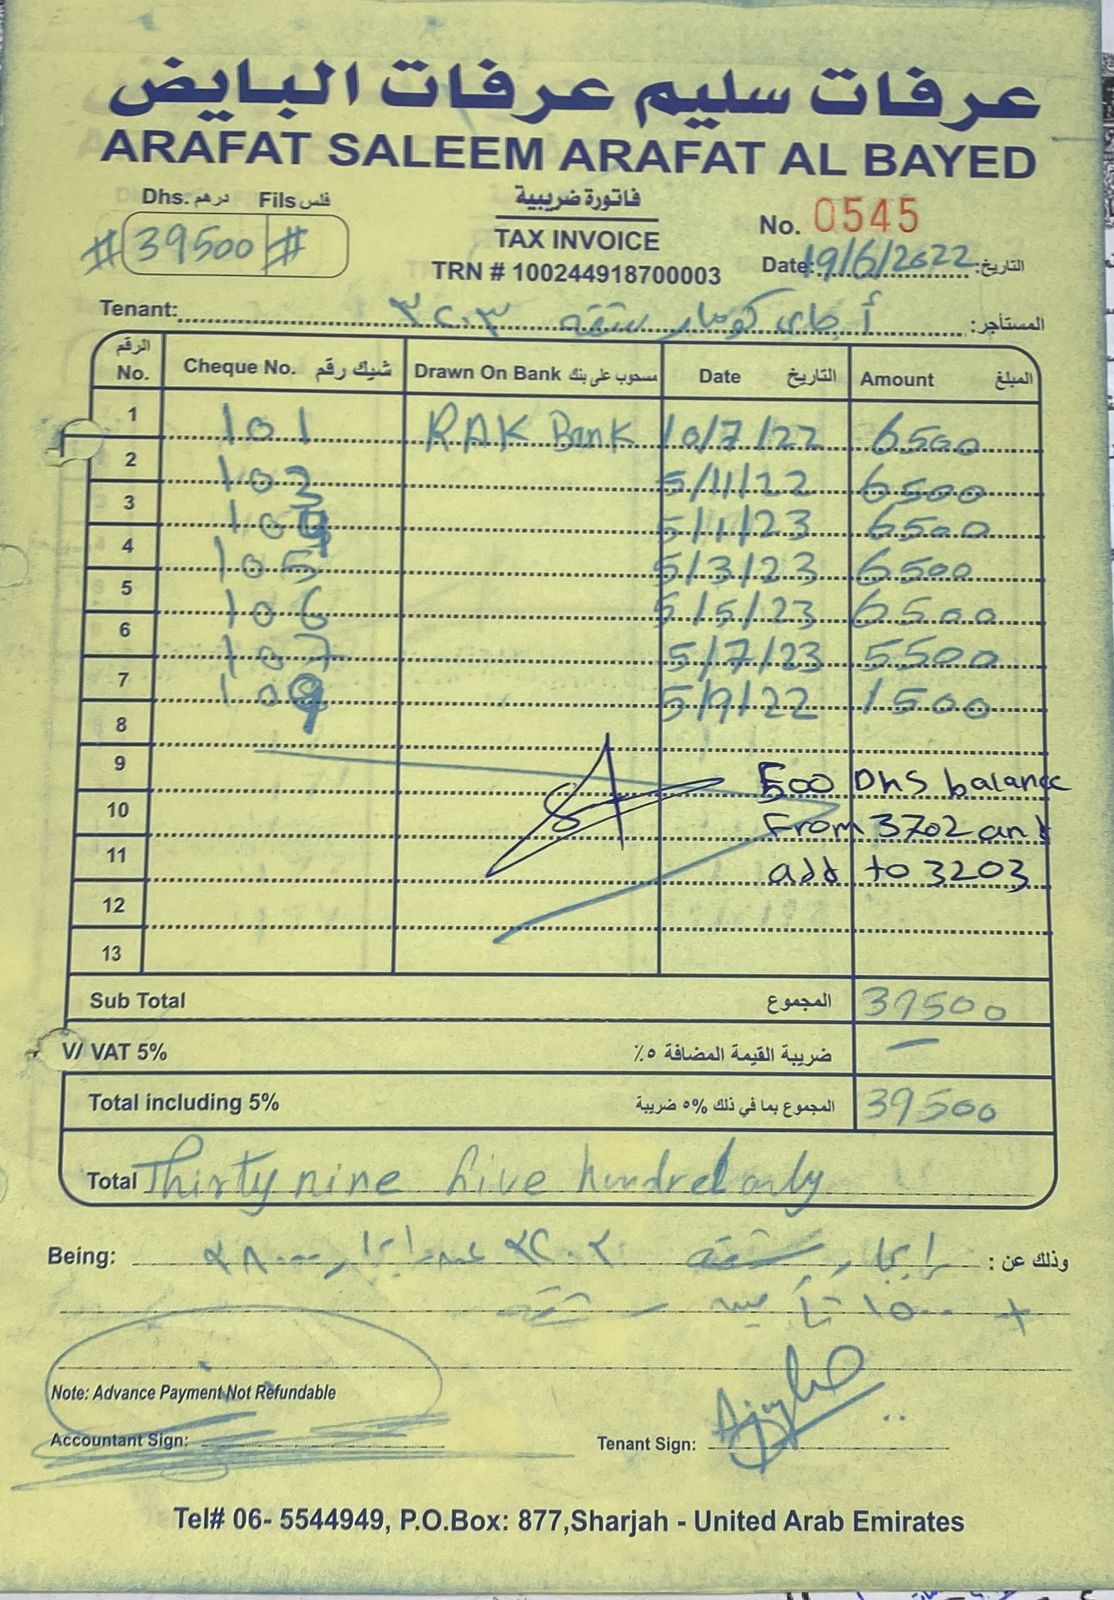 عرفات سليم عرفات البايض
ARAFAT SALEEM ARAFAT AL BAYED
Dhs. درهم Fils فلس
# 39500 #
فاتورة ضريبية
TAX INVOICE
TRN # 100244918700003
No. 0545
Date: 19/6/2022 التاريخ:
Tenant: أجاى كومار شقه ٣٢٠٣ المستأجر:
الرقم No. Cheque No. شيك رقم Drawn On Bank مسحوب على بنك Date التاريخ Amount المبلغ
1 101 RAK Bank 10/7/22 6500
2 103 5/11/22 6500
3 104 5/1/23 6500
4 105 5/3/23 6500
5 106 5/5/23 6500
6 107 5/7/23 5500
7 109 5/9/22 1500
8
9 500 Dhs balance
10 From 3702 and
11 add to 3203
12
13
Sub Total المجموع 39500
V/ VAT 5% ضريبة القيمة المضافة ٥٪ —
Total including 5% المجموع بما في ذلك ٥% ضريبة 39500
Total Thirty nine five hundred only
Being: ايجار شقه ٣٢٠٣ ٣٨٠٠٠ وذلك عن :
+ ١٥٠٠ تأمين شقه
Note: Advance Payment Not Refundable
Accountant Sign:
Tenant Sign:
Tel# 06- 5544949, P.O.Box: 877,Sharjah - United Arab Emirates